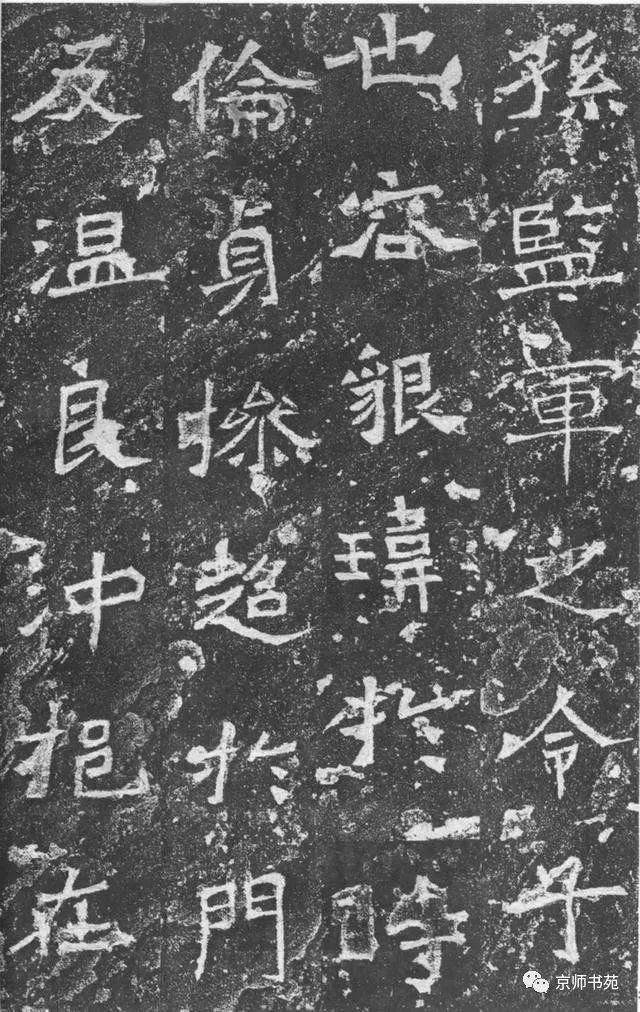 孫監軍之令子
也容貌瑋於時
倫貞操超於門
友温良沖挹在
京师书苑